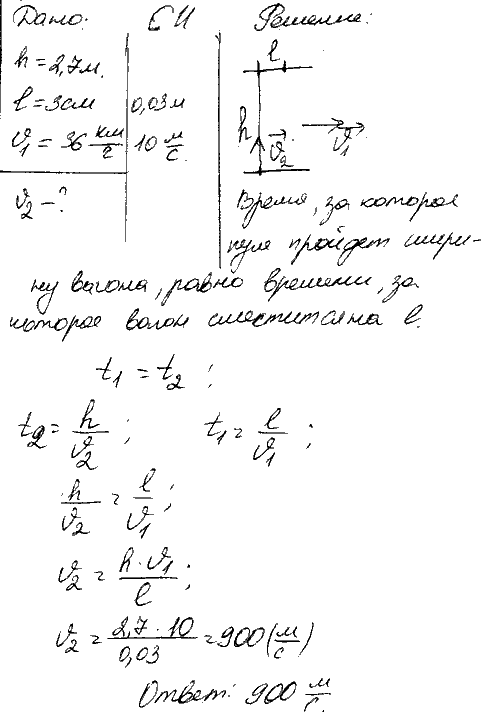 Дано: СИ Решение:
h = 2,7 м.
l = 3 см 0,03 м
l
ϑ₁ = 36 км/г 10 м/с.
h ϑ₂ ϑ₁
ϑ₂ – ?
Время, за которое
пуля пройдет шири-
ну вагона, равно времени, за
которое вагон сместится на l.
t₁ = t₂ ;
t₂ = h/ϑ₂ ; t₁ = l/ϑ₁ ;
h/ϑ₂ = l/ϑ₁ ;
ϑ₂ = h·ϑ₁/l ;
ϑ₂ = 2,7·10/0,03 = 900 (м/с)
Ответ: 900 м/с.